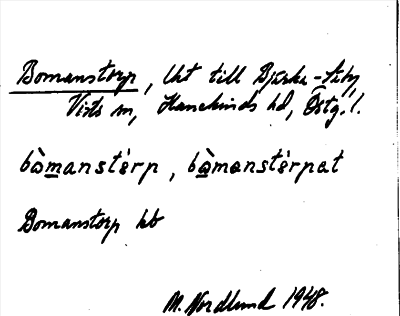 Bomanstorp, lht till Bjärka-Säby,
Vists sn, Hanekinds hd, Östg. l.
bòmanstèrp, bòmanstèrpet
Bomanstorp kb
M. Nordlund 1948.